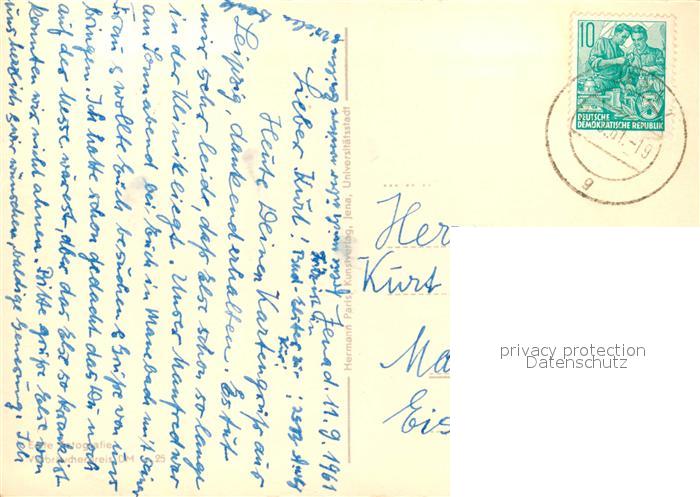 Jena d. 11.9.1961
Lieber Kurt!
Heute Deinen Kartengruß aus
Leipzig, dankend erhalten. Es tut
mir sehr leide, daß Else schon so lange
in der Klinik liegt. Unser Manfred war
am Sonnabend bei Euch in Manebach mit seiner
Frau & wollte Euch besuchen & Grüße von uns
bringen. Ich hatte schon gedacht das Du n. Lei
auf der Messe wärest, aber das Else so krank ist
konnten wir nicht ahnen. Bitte grüße Else von
uns herzlich & wir wünschen baldige Genesung. Ich
Hermann Paris, Kunstverlag, Jena, Universitätsstadt
Echte Fotografie
Verbraucherpreis DM 25
10
DEUTSCHE
DEMOKRATISCHE REPUBLIK
61.-19
g
Her
Kurt
Ma
Eis
privacy protection
Datenschutz